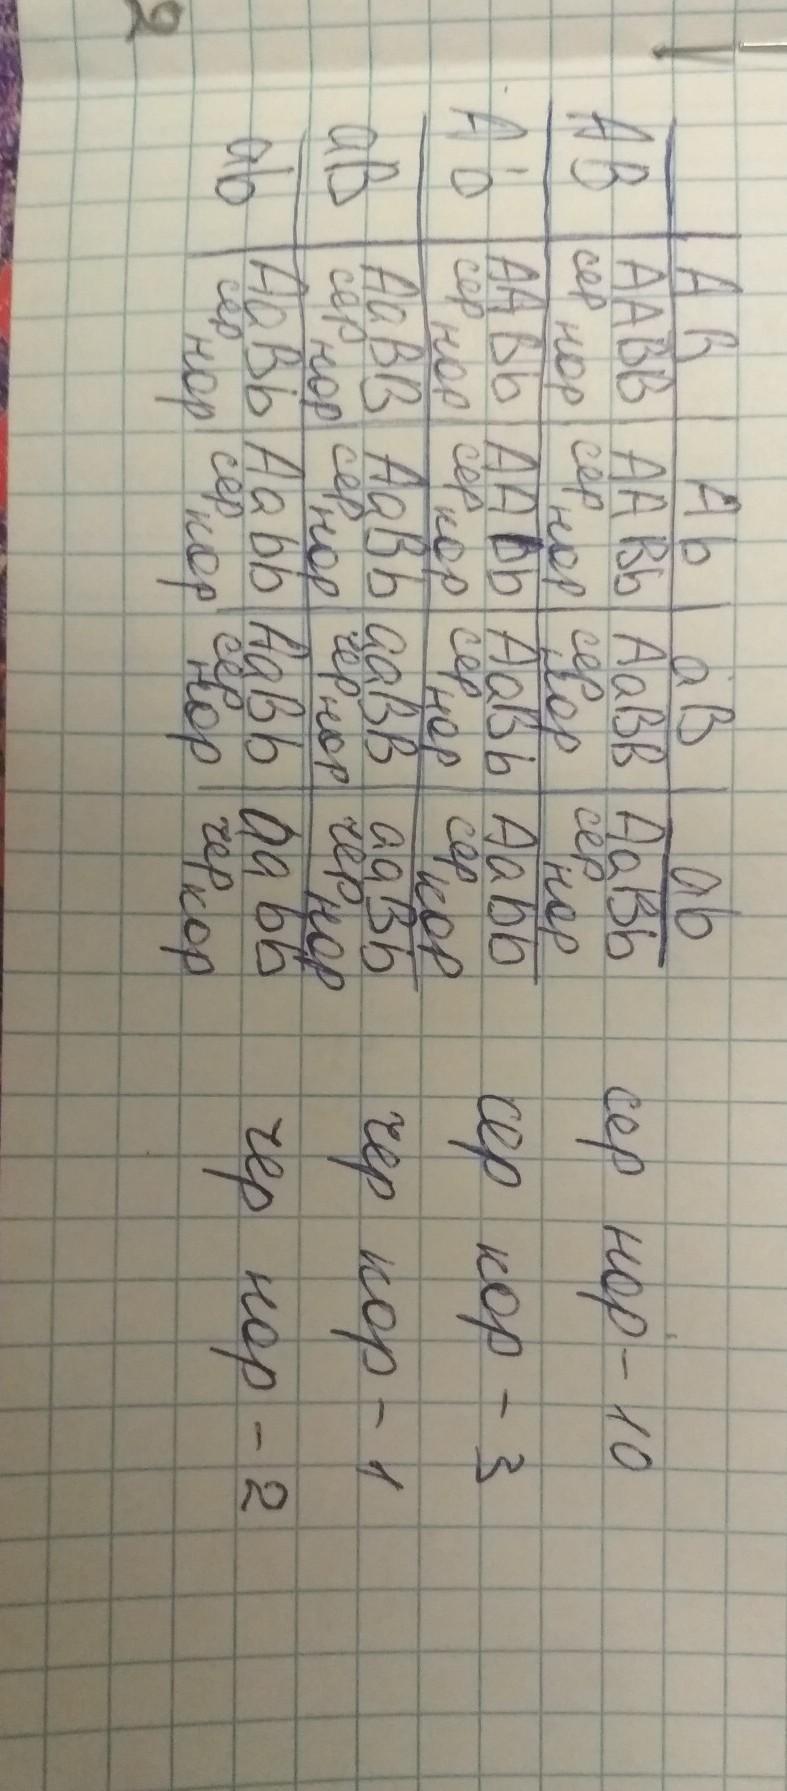 AB Ab aB ab
AB AABB AABb AaBB AaBb
сер нор сер нор сер нор сер нор
Ab AABb AAbb AaBb Aabb
сер нор сер кор сер нор сер кор
aB AaBB AaBb aaBB aaBb
сер нор сер нор чер нор чер нор
ab AaBb Aabb AaBb aabb
сер нор сер кор сер нор чер кор
сер нор - 10
сер кор - 3
чер кор - 1
чер нор - 2
2